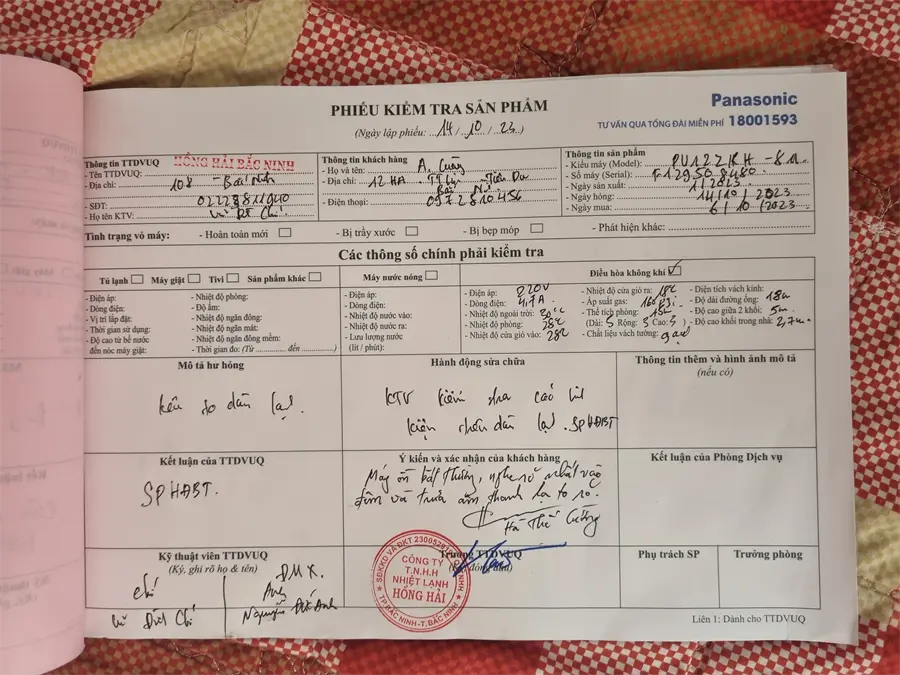 PHIẾU KIỂM TRA SẢN PHẨM
(Ngày lập phiếu: 14/10/23)
Panasonic
TƯ VẤN QUA TỔNG ĐÀI MIỄN PHÍ 18001593
Thông tin TTDVUQ
- Tên TTDVUQ: HỒNG HẢI BẮC NINH
- Địa chỉ: 108 - Bắc Ninh
- SĐT: 02223811940
- Họ tên KTV: Chí
Thông tin khách hàng
- Họ và tên: A. Cường
- Địa chỉ: 12 HA. Tiên Du
Bắc Ni
- Điện thoại: 0972810456
Thông tin sản phẩm
- Kiểu máy (Model):
- Số máy (Serial): F129508480
- Ngày sản xuất: 1/2023
- Ngày hỏng: 14/10/2023
- Ngày mua: 6/10/2023
Tình trạng vỏ máy: - Hoàn toàn mới - Bị trầy xước - Bị bẹp móp - Phát hiện khác:
Các thông số chính phải kiểm tra
Tủ lạnh Máy giặt Tivi Sản phẩm khác
- Điện áp:
- Dòng điện:
- Vị trí lắp đặt:
- Thời gian sử dụng:
- Độ cao từ bể nước
đến nóc máy giặt:
- Nhiệt độ phòng:
- Độ ẩm:
- Nhiệt độ ngăn đông:
- Nhiệt độ ngăn mát:
- Nhiệt độ ngăn đông mềm:
- Thời gian đo: (Từ ... đến ...)
Máy nước nóng
- Điện áp:
- Dòng điện:
- Nhiệt độ nước vào:
- Nhiệt độ nước ra:
- Lưu lượng nước
(lít / phút):
Điều hòa không khí ✓
- Điện áp: 220V
- Dòng điện: 4.7A
- Nhiệt độ ngoài trời: 30°C
- Nhiệt độ phòng: 28°C
- Nhiệt độ cửa gió vào: 28°C
- Nhiệt độ cửa gió ra: 18°C
- Áp suất gas:
- Thể tích phòng:
(Dài: 5 Rộng: 3 Cao: 3)
- Chất liệu vách tường: gạch
- Diện tích vách kính:
- Độ dài đường ống: 18m
- Độ cao giữa 2 khối: 5m
- Độ cao khối trong nhà: 2,7m
Mô tả hư hỏng
kêu do dàn lạnh.
Hành động sửa chữa
KTV kiểm tra các linh
kiện trên dàn lạnh. SPHĐBT
Thông tin thêm và hình ảnh mô tả
(nếu có)
Kết luận của TTDVUQ
SPHĐBT.
Ý kiến và xác nhận của khách hàng
Máy ồn bất thường, nghe rõ nhất vào
đêm và trưa âm thanh lạ to rõ.
Hà Thế Cường
Kết luận của Phòng Dịch vụ
Kỹ thuật viên TTDVUQ
(Ký, ghi rõ họ & tên)
Chí
Vũ Đức Chí
ĐMX.
Anh
Nguyễn Đức Anh
Trưởng TTDVUQ
CÔNG TY
T.N.H.H
NHIỆT LẠNH
HỒNG HẢI
TP.BẮC NINH-T.BẮC NINH
Phụ trách SP
Trưởng phòng
Liên 1: Dành cho TTDVUQ